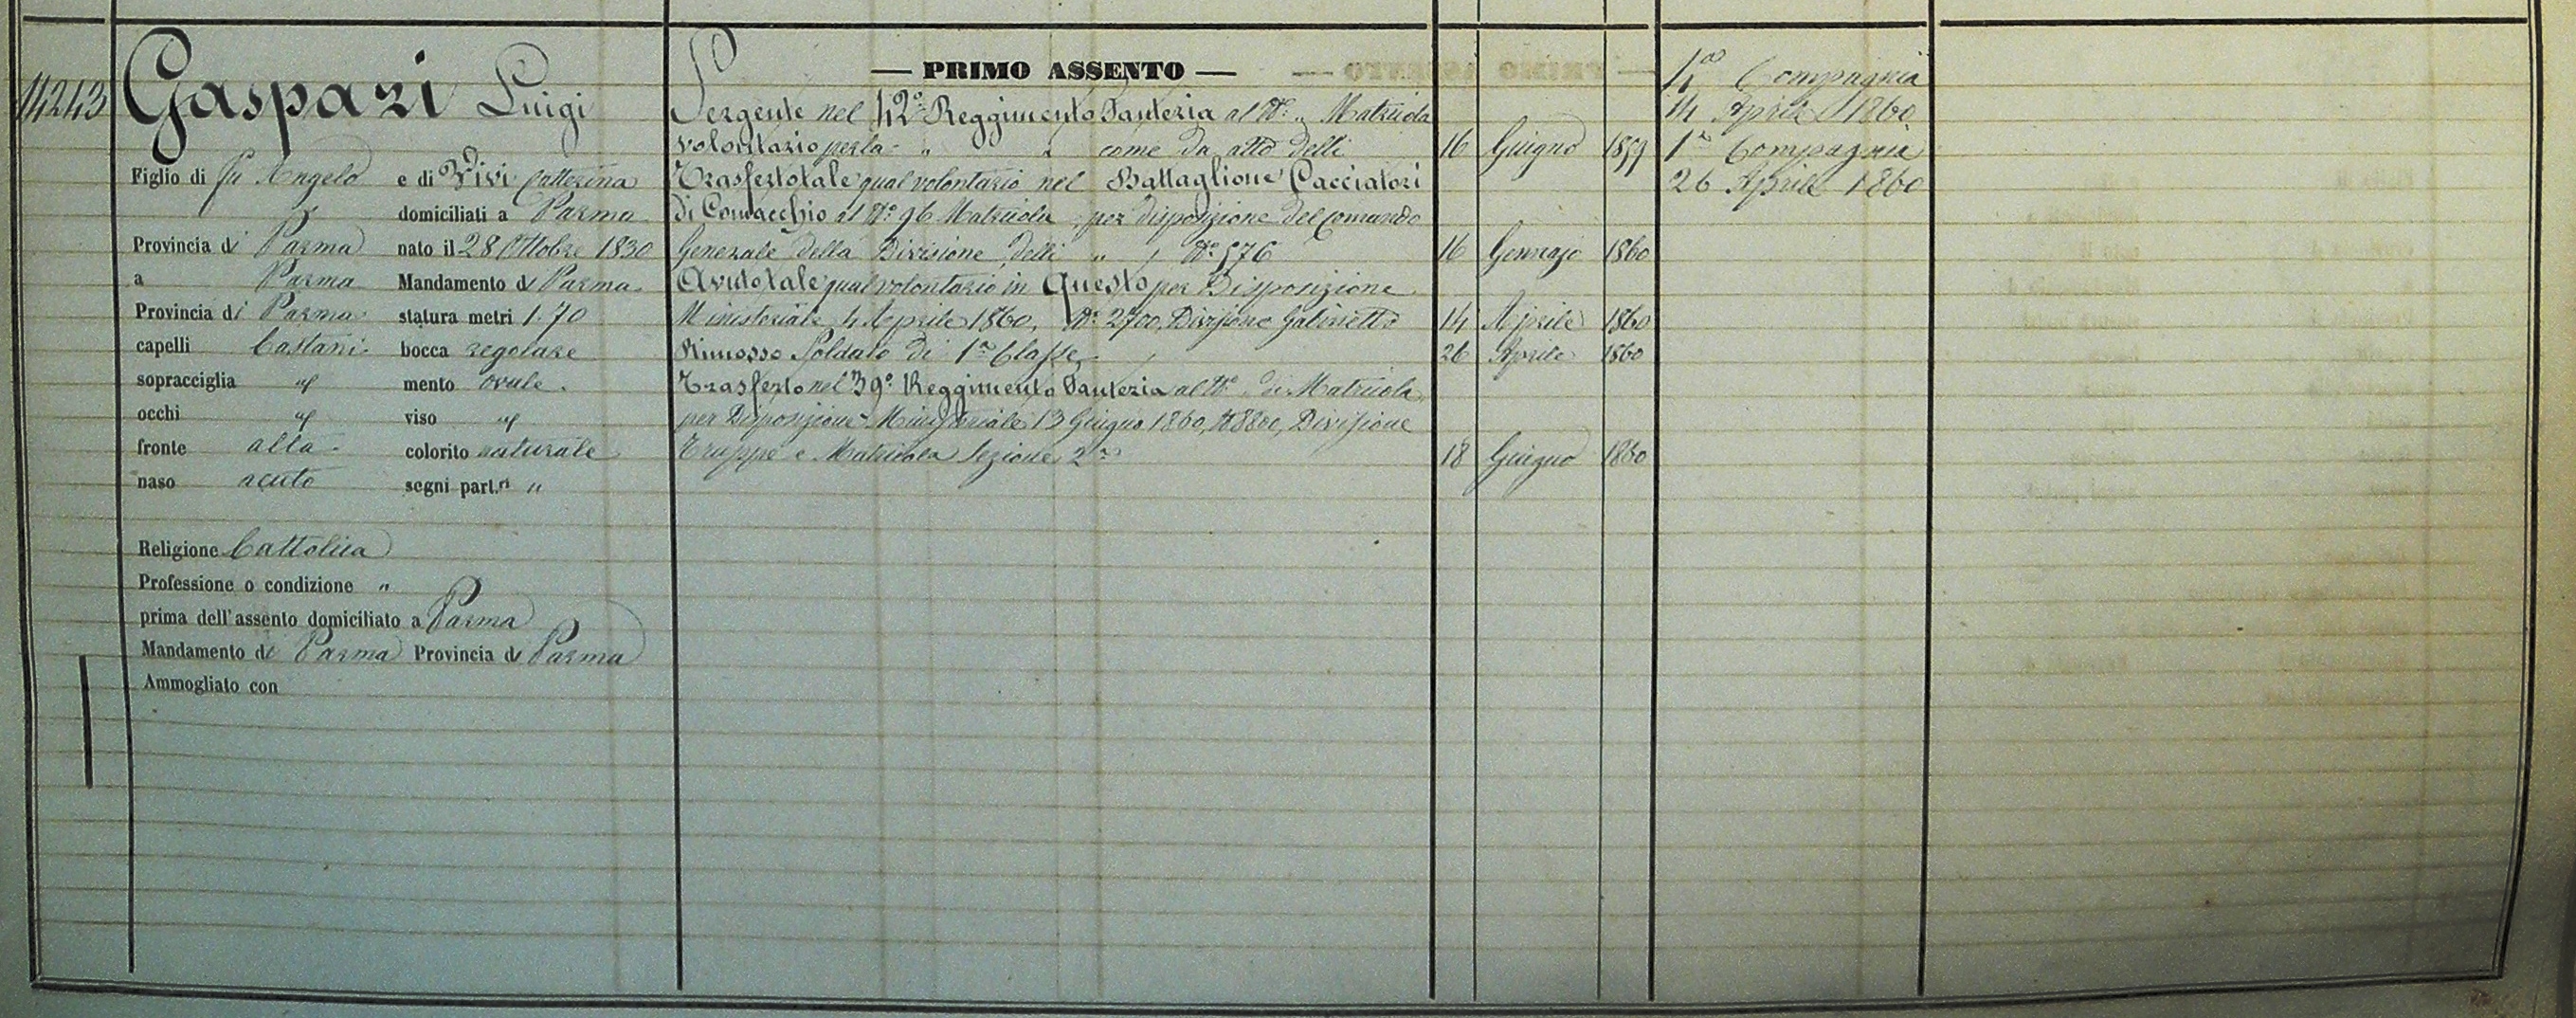 14243
Gaspari Luigi
Figlio di fu Angelo e di Vivi Catterina
domiciliati a Parma
Provincia di Parma nato il 28 Ottobre 1830
a Parma Mandamento di Parma
Provincia di Parma statura metri 1.70
capelli Castani bocca regolare
sopracciglia " mento ovale.
occhi " viso "
fronte alta colorito naturale
naso acuto segni part.ri "
Religione Cattolica
Professione o condizione "
prima dell'assento domiciliato a Parma
Mandamento di Parma Provincia di Parma
Ammogliato con
— PRIMO ASSENTO —
Sergente nel 42° Reggimento Fanteria al N° " Matricola
volontario per la " " come da atto delli 16 Giugno 1859
Trasferto tale qual volontario nel Battaglione Cacciatori
di Comacchio al N° 96 Matricola, per disposizione del comando
Generale della Divisione, delli " , N° 576 16 Gennajo 1860
Avuto tale qual volontario in Questo per Disposizione
Ministeriale 4 Aprile 1860, N° 2700, Divisione Gabinetto 14 Aprile 1860
Rimosso Soldato di 1a Classe 26 Aprile 1860
Trasferto nel 39° Reggimento Fanteria al N° di Matricola
per Disposizione Ministeriale 13 Giugno 1860, N 8800, Divisione
Truppe e Matricola Sezione 2a 18 Giugno 1860
4a Compagnia
14 Aprile 1860
1a Compagnia
26 Aprile 1860